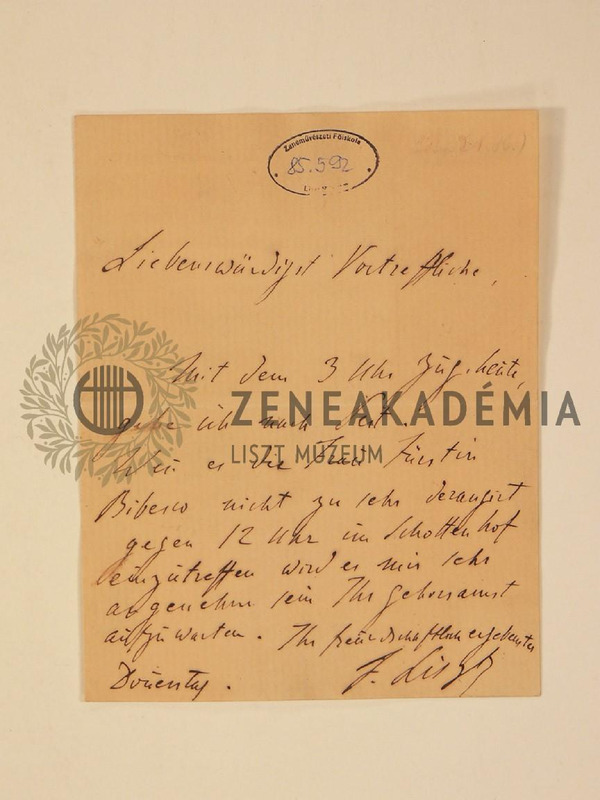 Zeneművészeti Főiskola
85.592
Liebenswürdigst Vortreffliche,
Mit dem 3 Uhr Zug, heute,
gehe ich nach Pest.
Wenn es die Frau Fürstin
Bibesco nicht zu sehr derangirt
gegen 12 Uhr im Schottenhof
einzutreffen wird es mir sehr
angenehm sein Ihr gehorsamst
aufzuwarten. Ihr freundschaftlich ergebenster
Donerstag. F. Liszt
ZENEAKADÉMIA
LISZT MÚZEUM